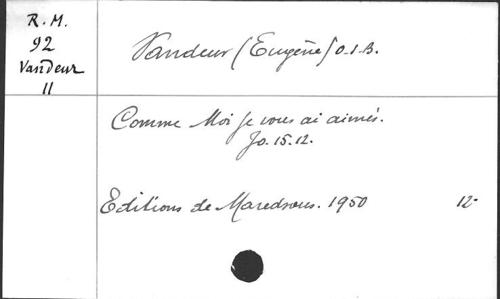 R.M.
92
Vandeur
11
Vandeur (Eugène) O.S.B.
Comme Moi je vous ai aimés.
Jo. 15.12.
Editions de Maredsous. 1950 12-